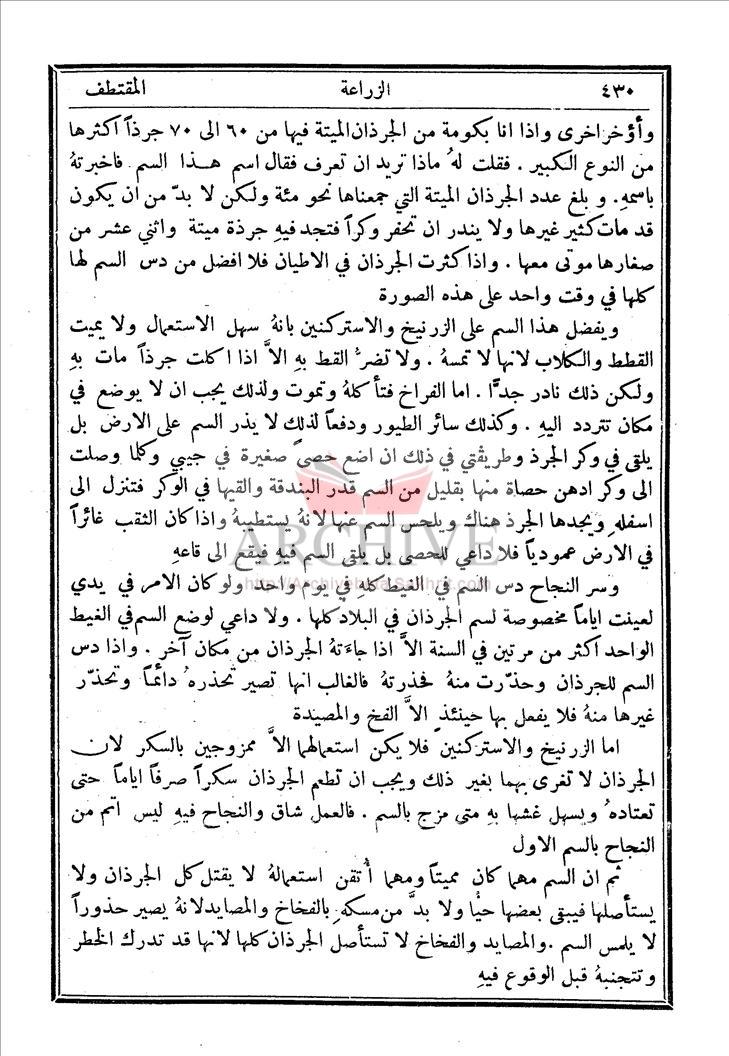 ٤٣٠ الزراعة المقتطف
وأُؤخر اخرى واذا انا بكومة من الجرذان الميتة فيها من ٦٠ الى ٧٠ جرذاً اكثرها
من النوع الكبير . فقلت لهُ ماذا تريد ان تعرف فقال اسم هذا السم فاخبرتهُ
باسمهِ. وبلغ عدد الجرذان الميتة التي جمعناها نحو مئة ولكن لا بدّ من ان يكون
قد مات كثير غيرها ولا يندر ان تحفر وكراً فتجد فيهِ جرذة ميتة واثني عشر من
صغارها موتى معها . واذا كثرت الجرذان في الاطيان فلا افضل من دس السم لها
كلها في وقت واحد على هذه الصورة
ويفضل هذا السم على الزرنيخ والاستركنين بانهُ سهل الاستعمال ولا يميت
القطط والكلاب لانها لا تمسهُ . ولا تضرُّ القط بهِ الاَّ اذا اكلت جرذاً مات بهِ
ولكن ذلك نادر جدًّا . اما الفراخ فتأكلهُ وتموت ولذلك يجب ان لا يوضع في
مكان تتردد اليهِ . وكذلك سائر الطيور ودفعاً لذلك لا يذر السم على الارض بل
يلقى في وكر الجرذ وطريقتي في ذلك ان اضع حصىً صغيرة في جيبي وكلما وصلت
الى وكر ادهن حصاة منها بقليل من السم قدر البندقة والقيها في الوكر فتنزل الى
اسفلهِ ويجدها الجرذ هناك ويلحس السم عنها لانهُ يستطيبهُ واذا كان الثقب غائراً
في الارض عموديًا فلا داعي للحصى بل يلقى السم فيهِ فيقع الى قاعهِ
وسر النجاح دس السم في الغيط كلهِ في يوم واحد ولو كان الامر في يدي
لعينت اياماً مخصوصة لسم الجرذان في البلاد كلها . ولا داعي لوضع السم في الغيط
الواحد اكثر من مرتين في السنة الاَّ اذا جاءتهُ الجرذان من مكان آخر . واذا دس
السم للجرذان وحذّرت منهُ فحذرتهُ فالغالب انها تصير تحذرهُ دائماً وتحذّر
غيرها منهُ فلا يفعل بها حينئذٍ الاَّ الفخ والمصيدة
اما الزرنيخ والاستركنين فلا يمكن استعمالهما الاَّ ممزوجين بالسكر لان
الجرذان لا تغرى بهما بغير ذلك ويجب ان تطعم الجرذان سكراً صرفاً اياماً حتى
تعتادهُ ويسهل غشها بهِ متى مزج بالسم . فالعمل شاق والنجاح فيهِ ليس اتم من
النجاح بالسم الاول
ثم ان السم مهما كان مميتاً ومهما أُتقن استعمالهُ لا يقتل كل الجرذان ولا
يستأصلها فيبقى بعضها حيًّا ولا بدَّ من مسكهِ بالفخاخ والمصايد لانهُ يصير حذوراً
لا يلمس السم . والمصايد والفخاخ لا تستأصل الجرذان كلها لانها قد تدرك الخطر
وتتجنبهُ قبل الوقوع فيهِ
ARCHIVE